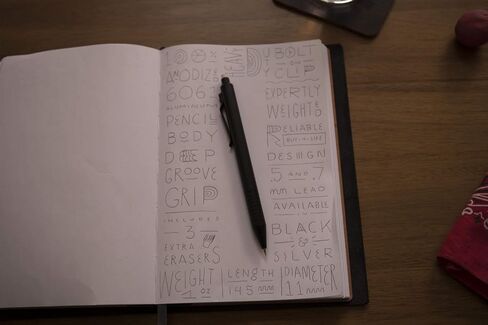 100%
ANODIZED
6061
ALUMINUM
PENCIL
BODY
DEEP
GROOVE
GRIP
INCLUDES
3
EXTRA
ERASERS
HEAVY DUTY BOLT
CLIP
EXPERTLY
WEIGHTED
RELIABLE
BUY-4-LIFE
DESIGN
.5 AND .7
mm LEAD
AVAILABLE
IN
BLACK
&
SILVER
WEIGHT
1 OZ
LENGTH
145 mm
DIAMETER
11 mm